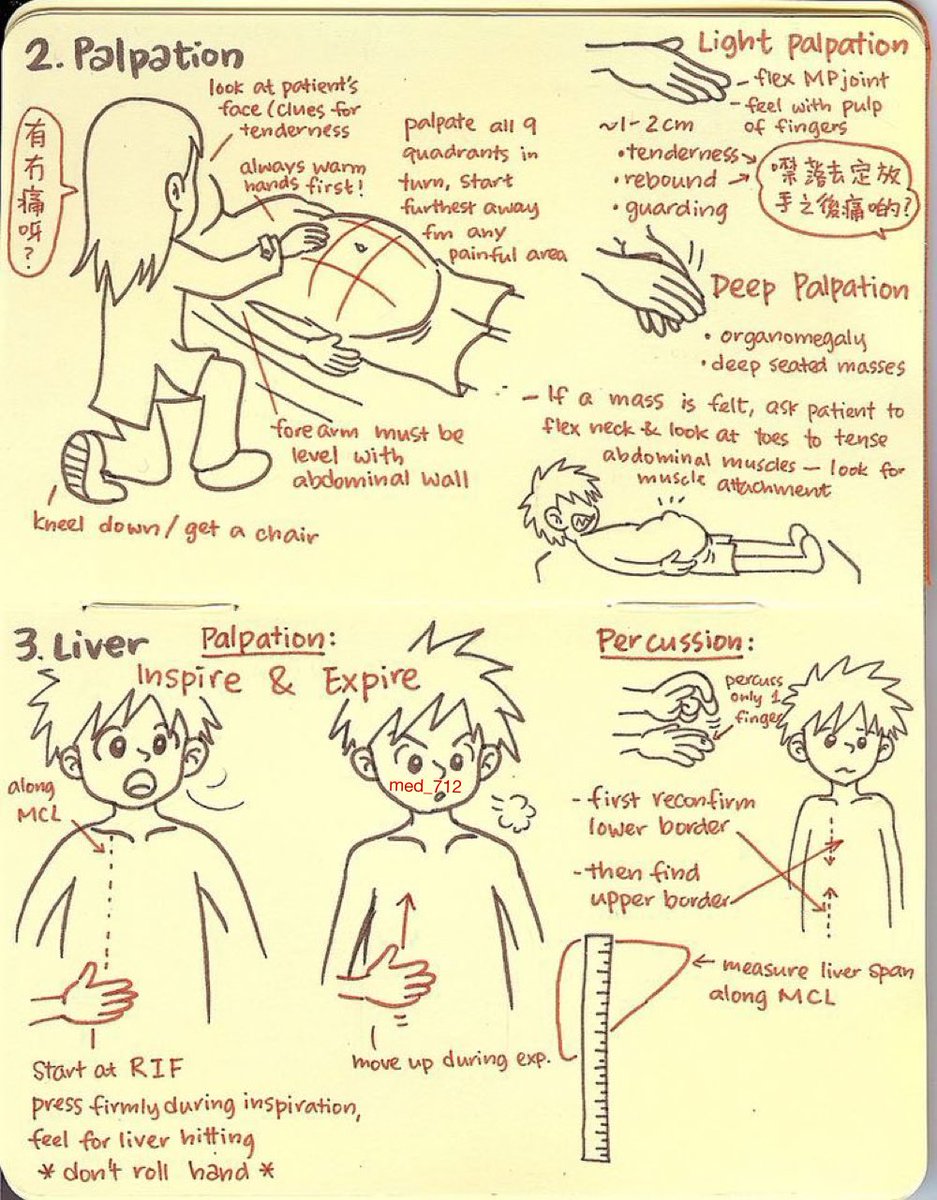 2. Palpation
有冇痛呀?
look at patient's
face (clues for
tenderness
always warm
hands first!
palpate all 9
quadrants in
turn, start
furthest away
fm any
painful area
forearm must be
level with
abdominal wall
kneel down / get a chair
Light palpation
- flex MP joint
- feel with pulp
of fingers
~1-2cm
• tenderness
• rebound
• guarding
㩒落去定放
手之後痛啲的?
Deep Palpation
• organomegaly
• deep seated masses
- If a mass is felt, ask patient to
flex neck & look at toes to tense
abdominal muscles - look for
muscle attachment
3. Liver
Palpation:
Inspire & Expire
along
MCL
med_712
Start at RIF
press firmly during inspiration,
feel for liver hitting
* don't roll hand *
move up during exp.
Percussion:
percuss
only 1
finger
- first reconfirm
lower border
- then find
upper border
measure liver span
along MCL